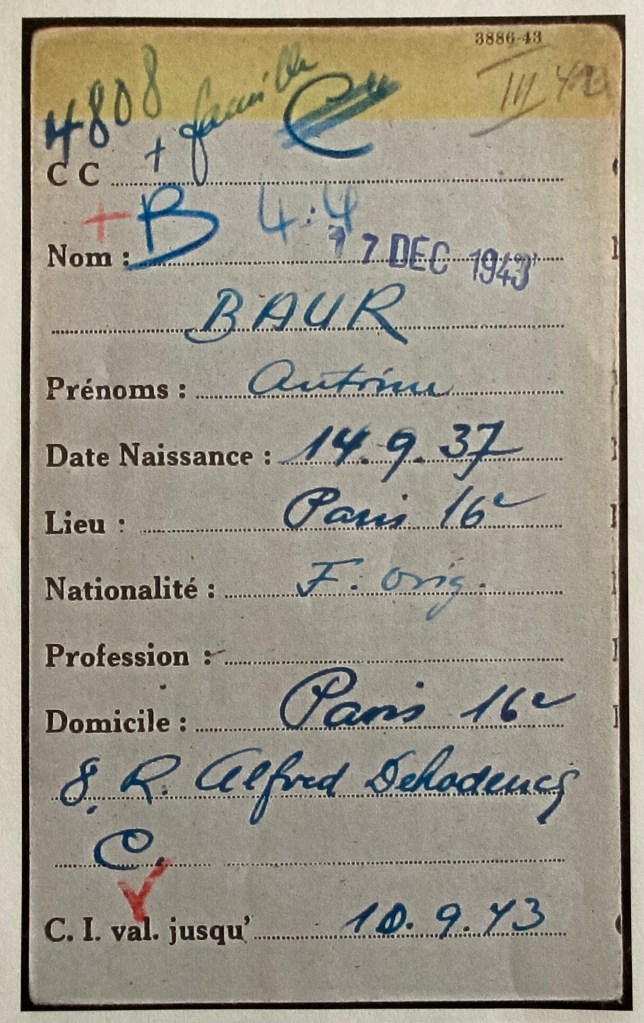 3886-43
4808 + famille C
III
C C
+ B 4.4
Nom : 17 DEC 1943
BAUR
Prénoms : Antoine
Date Naissance : 14.9.37
Lieu : Paris 16e
Nationalité : F. orig.
Profession :
Domicile : Paris 16e
8, R. Alfred Dehodencq
C.
C. I. val. jusqu' 10.9.43